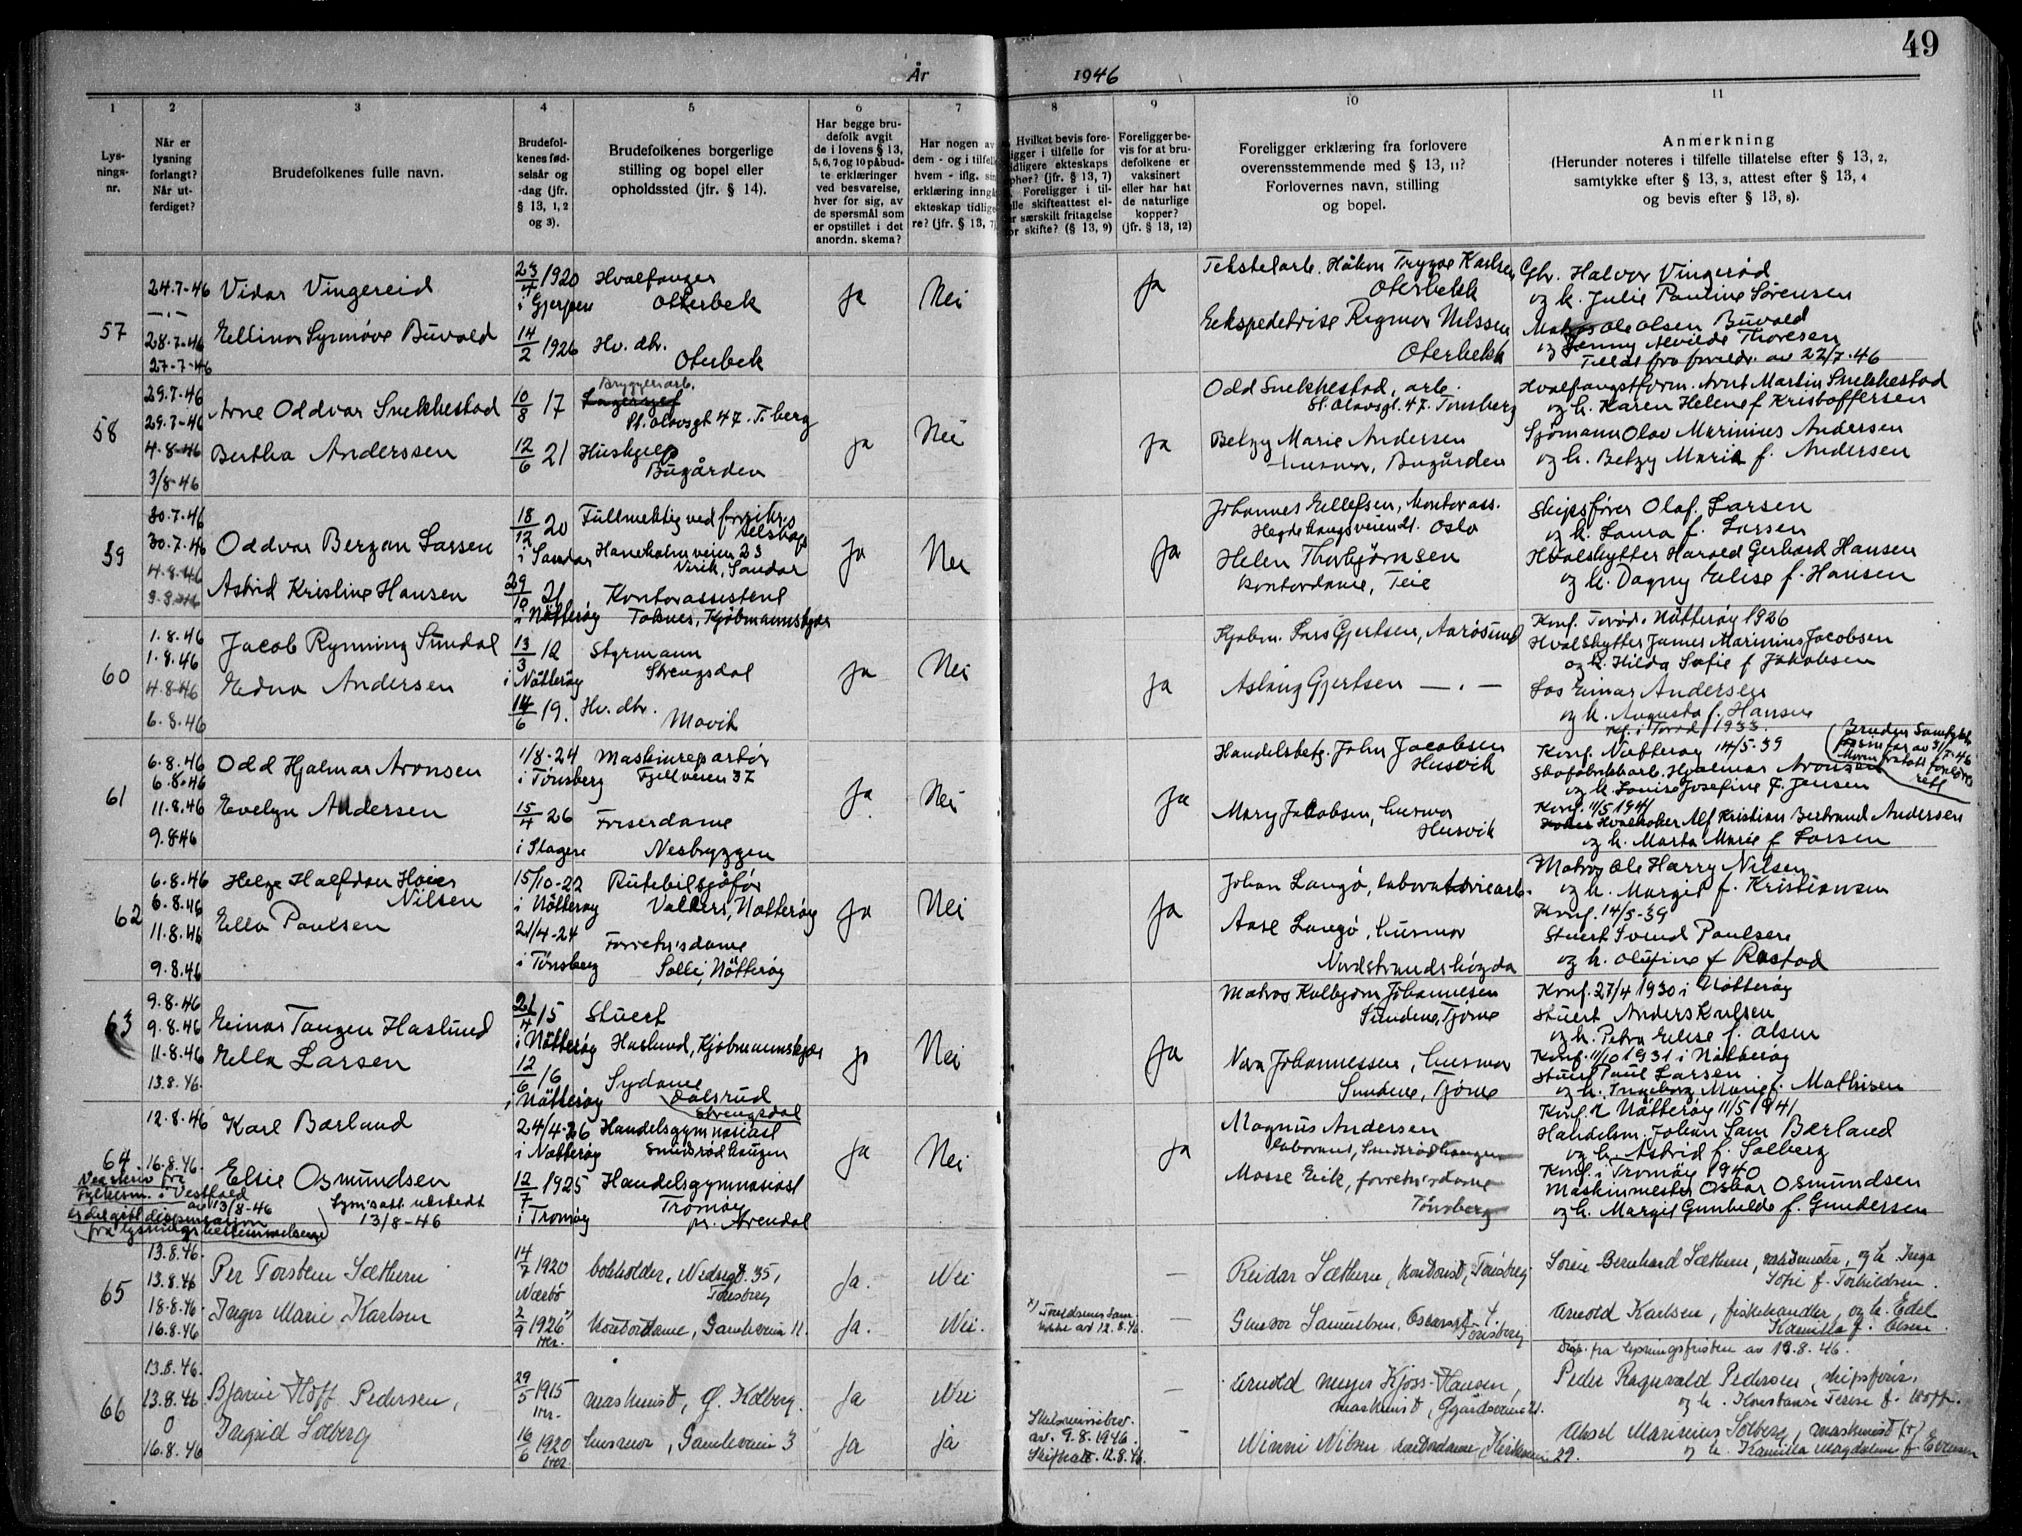 49
År 1946
1 2 3 4 5 6 7 8 9 10 11
Lys-
nings-
nr.
Når er
lysning
forlangt?
Når ut-
ferdiget?
Brudefolkenes fulle navn.
Brudefol-
kenes fød-
selsår og
-dag (jfr.
§ 13, 1, 2
og 3).
Brudefolkenes borgerlige
stilling og bopel eller
opholdssted (jfr. § 14).
Har begge bru-
defolk avgit
de i lovens § 13,
5, 6, 7 og 10 påbud-
te erklæringer
ved besvarelse,
hver for sig, av
de spørsmål som
er opstillet i det
anordn. skema?
Har nogen av
dem - og i tilfelle
hvem - iflg. sin
erklæring inngå
ekteskap tidlige
re? (jfr. § 13, 7)
Hvilket bevis fore-
ligger i tilfelle for
tidligere ekteskaps
ophør? (jfr. § 13, 7)
Foreligger i til-
felle skifteattest el-
er særskilt fritagelse
for skifte? (§ 13, 9)
Foreligger be-
vis for at bru-
defolkene er
vaksinert
eller har hat
de naturlige
kopper?
(jfr. § 13, 12)
Foreligger erklæring fra forlovere
overensstemmende med § 13, 11?
Forlovernes navn, stilling
og bopel.
Anmerkning
(Herunder noteres i tilfelle tillatelse efter § 13, 2,
samtykke efter § 13, 3, attest efter § 13, 4
og bevis efter § 13, 8).
57
24.7-46
28.7-46
27-7-46
Vidar Vingereid
Ellinor Synnøve Buvold
23/4 1920
i Gjerpen
14/2 1926
Hvalfanger
Oterbek
Hv. dtr.
Oterbek
Ja
Nei
Ja
Tekstilarb. Håkon Trygve Karlsen
Oterbekk
Ekspeditrise Ragmor Nilssen
Oterbekk
Gbr. Halvor Vingerød
og h. Julie Pauline Sørensen
Matros Ole Olsen Buvold
og Jenny Alvilde Thoresen
Tillat fra foreldr. av 22/7-46
58
29.7-46
29.7-46
4-8-46
3/8-46
Arne Oddvar Snekkestad
Bertha Anderssen
10/8 17
12/6 21
Bryggeriarb.
St. Olavsgt 47. T.berg
Hushjelp
Bugården
Ja
Nei
Ja
Odd Snekkestad, arb.
St. Olavsgt. 47. Tønsberg
Betzy Marie Andersen
husmor, Bugården
Hvalfangstform. Arnt Martin Snekkestad
og h. Karen Helene f Kristoffersen
Sjømann Olav Marinius Andersen
og h. Betzy Marie f. Andersen
59
30.7-46
30.7.46
4.8.46
3.8.46
Oddvar Bergan Larsen
Astrid Kristine Hansen
18/12 20
i Sandar
29/10 21
i Nøtterøy
Fullmektig ved forsikrs
selskap
Haneholmveien 23
Virik, Sandar
Kontorassistent
Toknes, Kjøbmannskjær
Ja
Nei
Ja
Johannes Ellefsen, Kontorass.
Hegdehaugsveien 21. Oslo
Helen Thorbjørnsen
kontordame, Teie
Skipsfører Olaf. Larsen
og h. Laura f. Larsen
Hvalskytter Harald Gerhard Hansen
og h. Dagny Elise f. Hansen
60
1.8.46
1.8.46
4.8.46
6.8.46
Jacob Rynning Sundal
Edna Andersen
13/3 12
i Nøtterøy
14/6 19.
Styrmann
Strengsdal
Hv. dtr.
Movik
Ja
Nei
Ja
Kjøbm. Lars Gjertsen, Aarøsund
Aslaug Gjertsen — . —
Konf. Torød i Nøtterøy 1926
Hvalskytter James Marinius Jacobsen
og h. Hilda Sofie f Jakobsen
Los Einar Andersen
og h. Augusta f. Hansen
Kf. i Torød 1933
61
6.8.46
6.8.46
11.8.46
9.8.46
Odd Hjalmar Aronsen
Evelyn Andersen
1/8-24
i Tønsberg
15/4 26
i Slagen
Maskinreparatør
Fjellveien 37
Friserdame
Nesbryggen
Ja
Nei
Ja
Handelsbetj. John Jacobsen
Husvik
Mary Jacobsen, husmor
Husvik
Konf. Nøtterøy 14/5-39
Skofabrikkarb. Hjalmar Aronsen
og h. Louise Josefine f. Jensen
Konf. 11/5 1941
Hvalkoker Alf Kristian Bertrand Andersen
og h. Marta Marie f Larsen
Brudens Samtykke
far av 31/7-46
Moren fratatt foreldre
rett
62
6.8.46
6.8.46
11.8.46
9.8.46
Helge Halfdan Høier
Nilsen
Ella Paulsen
15/10-22
i Nøtterøy
21/4-24
i Tønsberg
Rutebilsjåfør
Vallers, Nøtterøy
Forretn'sdame
Solli, Nøtterøy
Ja
Nei
Ja
Johan Langø, laboratoriearb.
Aase Langø, husmor
Nordstrandshøgda
Matros Ole Harry Nilsen
og h. Margit f. Kristiansen
Konf. 14/5-39
Stuert Svend Paulsen
og h. Olufine f Rostad
63
9.8.46
9.8.46
11.8.46
13.8.46
Einar Tangen Haslund
Ella Larsen
21/4 15
i Nøtterøy
12/6 16
i Nøtterøy
Stuert
Haslund, Kjøbmannskjær
Sydame
Dalsrud
Strengsdal
Ja
Nei
Ja
Matros Kolbjørn Johannesen
Sundene, Tjøme
Nora Johannessen, husmor
Sundene, Tjøme
Konf. 27/4 1930 i Nøtterøy
Stuert Anders Karlsen
og h. Petra Elise f. Olsen
Konf. 11/10 1931 i Nøtterøy
Stuert Paul Larsen
og h. Ingeborg Marie f. Mathisen
64
12.8.46
16.8.46.
Karl Bærland
Elsie Osmundsen
fra
Fylkesm. i Vestfold
av 13/8-46
er det gitt dispensasjon
fra lysningsbestemmelsene
Lysn's att. utstedt
13/8-46
24/4-26
i Nøtterøy
12/7 1925
i Tromøy
Handelsgymnasiast
Smidsrødhaugen
Handelsgymnasiast
Tromøy
pr. Arendal
Ja
Nei
Ja
Magnus Andersen
laborant, Smidsrødhaugen
Mosse Erik, forretn'sdame
Tønsberg
Konf. i Nøtterøy 11/5 1941
Handelsm. Johan Sam Bærland
og h. Astrid f. Solberg
Konf. i Tromøy 1940
Maskinmester Oskar Osmundsen
og h. Margit Gunhilde f. Gundersen
65
13.8.46.
13.8.46
18.8.46.
16.8.46
Per Torstein Sæthern
Inger Marie Karlsen
14/7 1920
Nærbø
2/9 1926
bokholder, Nedregt. 35,
Tønsberg
Kontordame, Gamleveien 11
Ja.
Ja.
Nei
Nei.
x) Foreldrenes Sam-
tykke av 12.8.46
—
—
Reidar Sæthern, kontorist, Tønsberg
Gunvor Samuelsen, Oscarsgt 4.
Tønsberg
Søren Bernhard Sæthern, vaktmester, og h. Inga
Sofie f. Torkildsen.
Arnold Karlsen, fiskehandler, og h. Edel
Kamilla f. Olsen.
66
13.8.46.
13.8.46
0
16.8.46
Bjarne Hoff Pedersen,
Ingrid Solberg
29/5 1915
16/6 1920
maskinist, Ø. Kolberg.
husmor, Gamleveien 3
Ja
Ja
Nei
ja
Skilsmissebev.
av. 9.8.1946.
Skifteatt. 12.8.46.
—
-
Arnold Meyer Kjøss-Hansen,
maskinist, 21.
Ninni Nilsen, kontordame, Kirkeveien 29.
Disp. fra lysningsfristen av 13.8.46.
Peder Ragnvald Pedersen, skipsfører,
og h. Konstanse Terese f. Hoff.
Aksel Marinius Solberg, maskinist (+)
og h. Kamilla Magdalene f Evensen